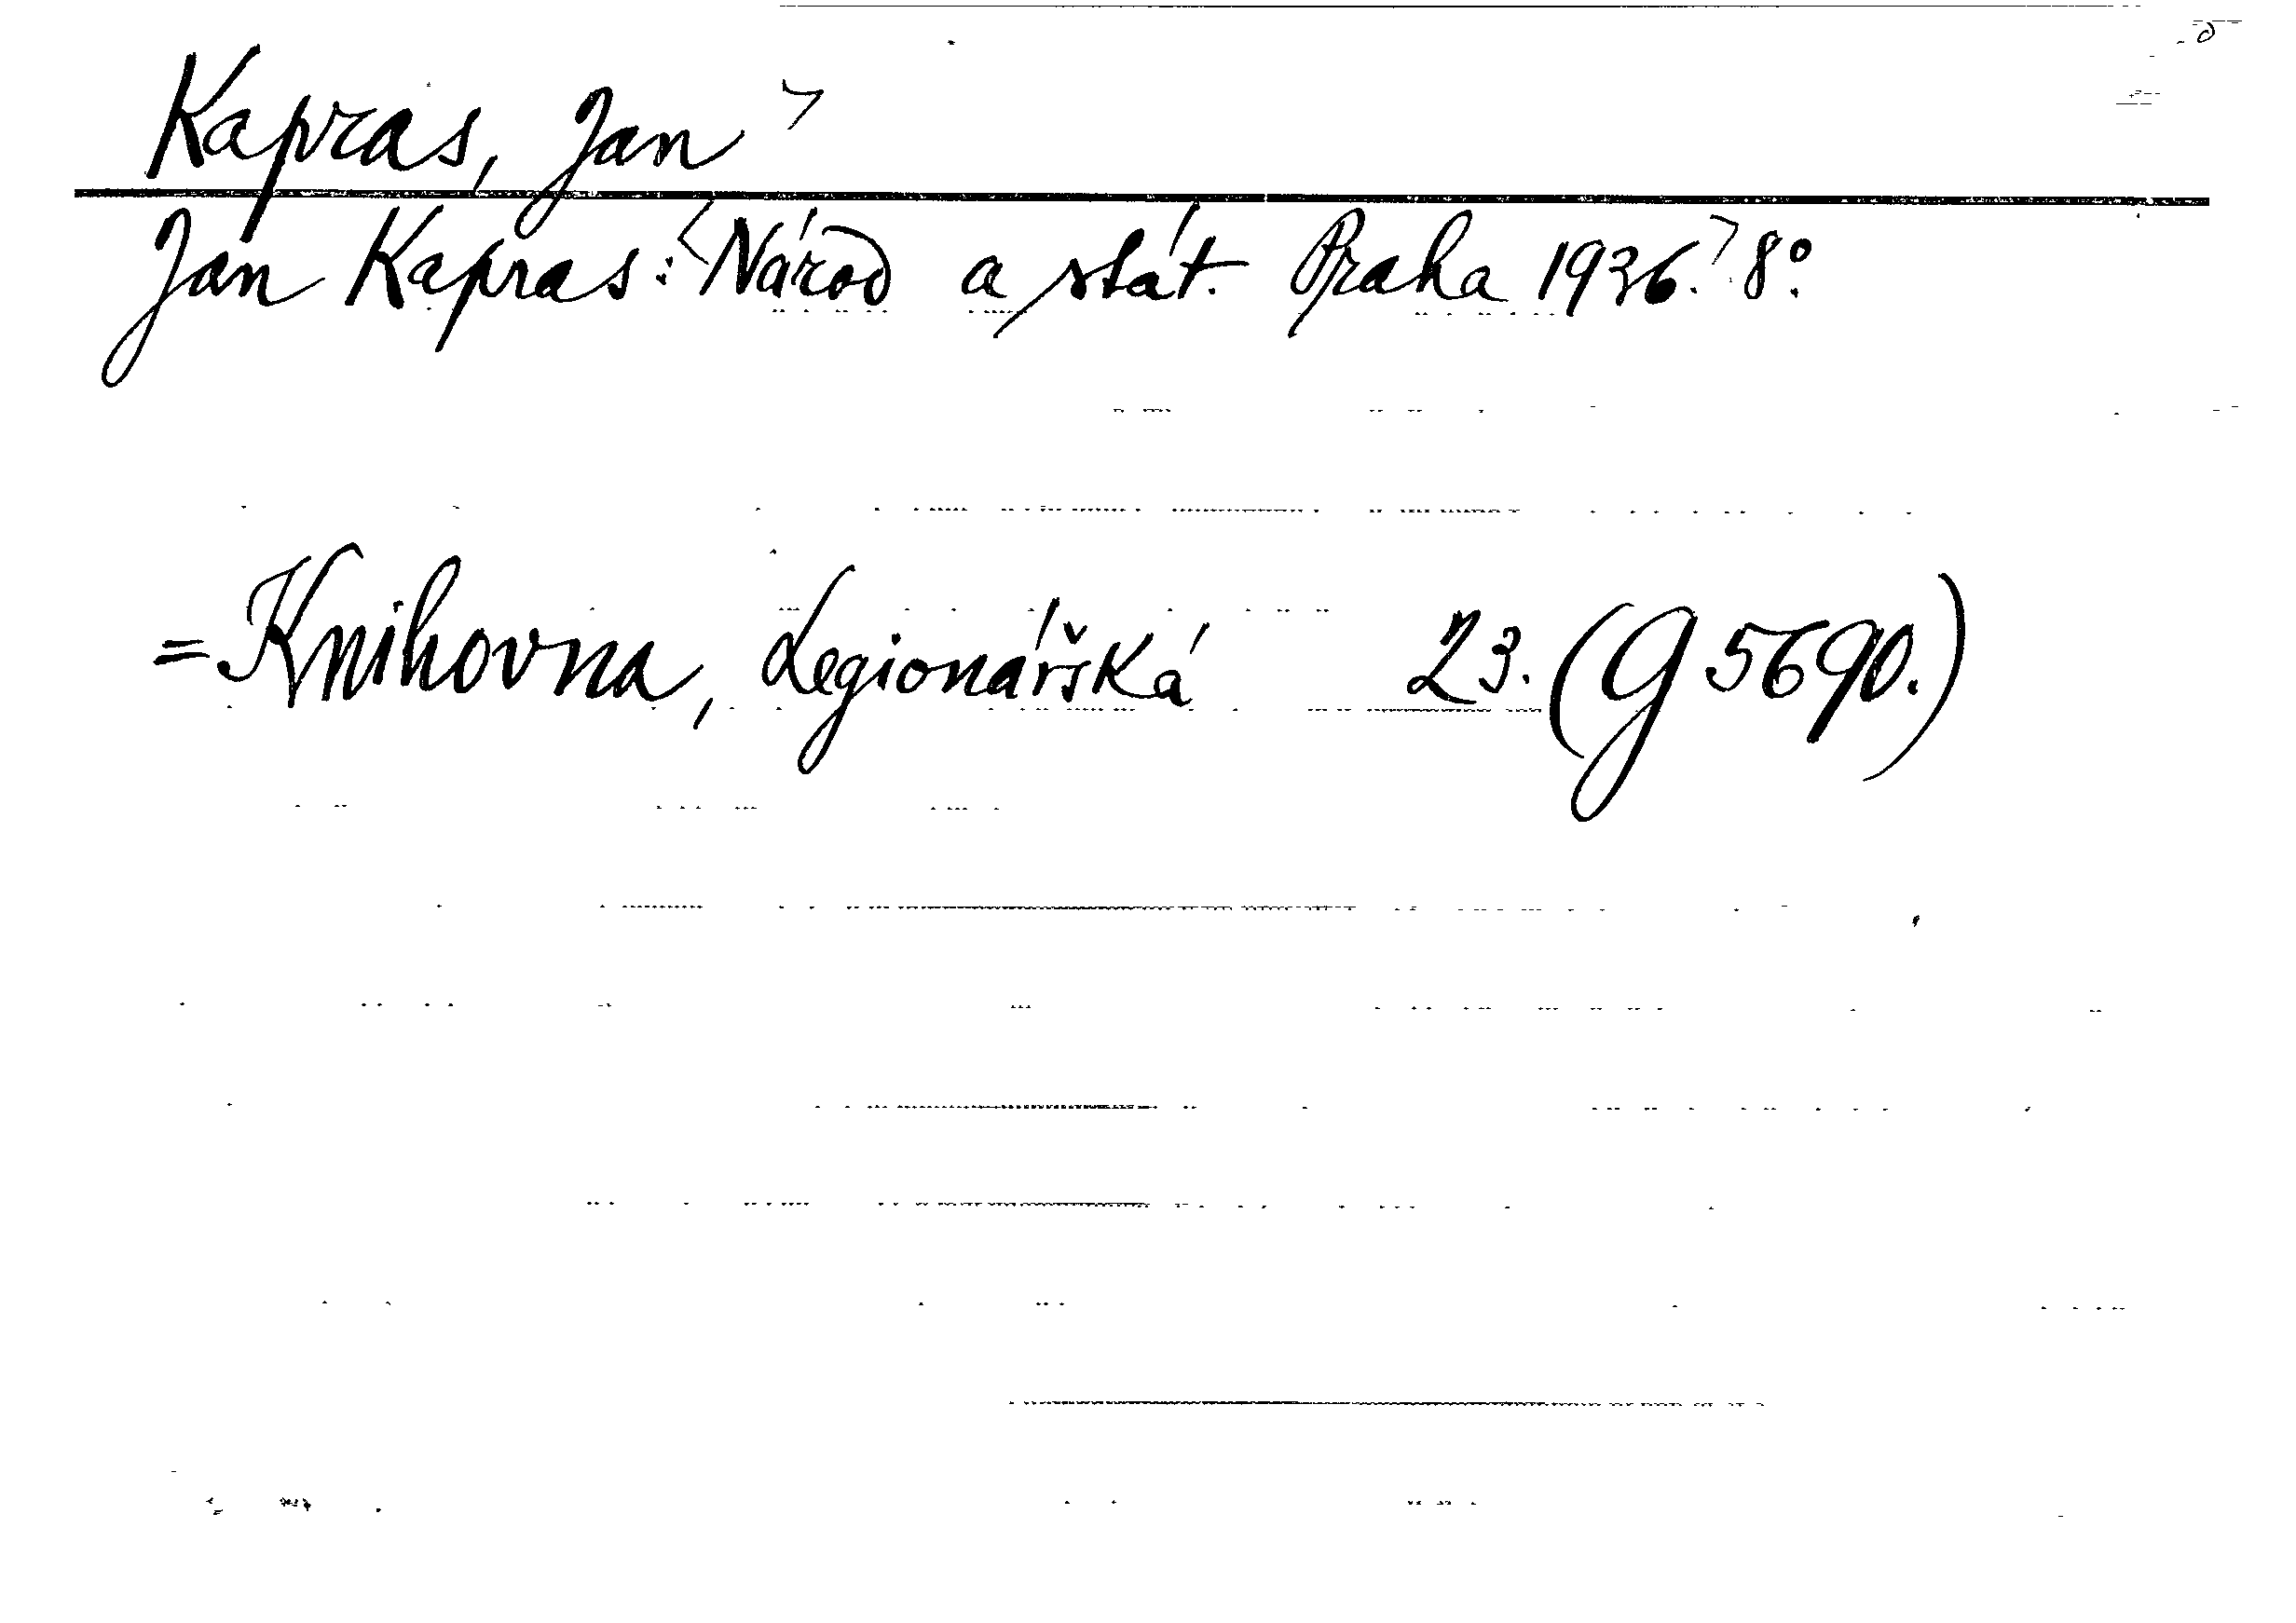 Kapras, Jan >
Jan Kapras: <Národ a stát. Praha 1936.> 8°.
= Knihovna, Legionářská 23. (G 5690.)